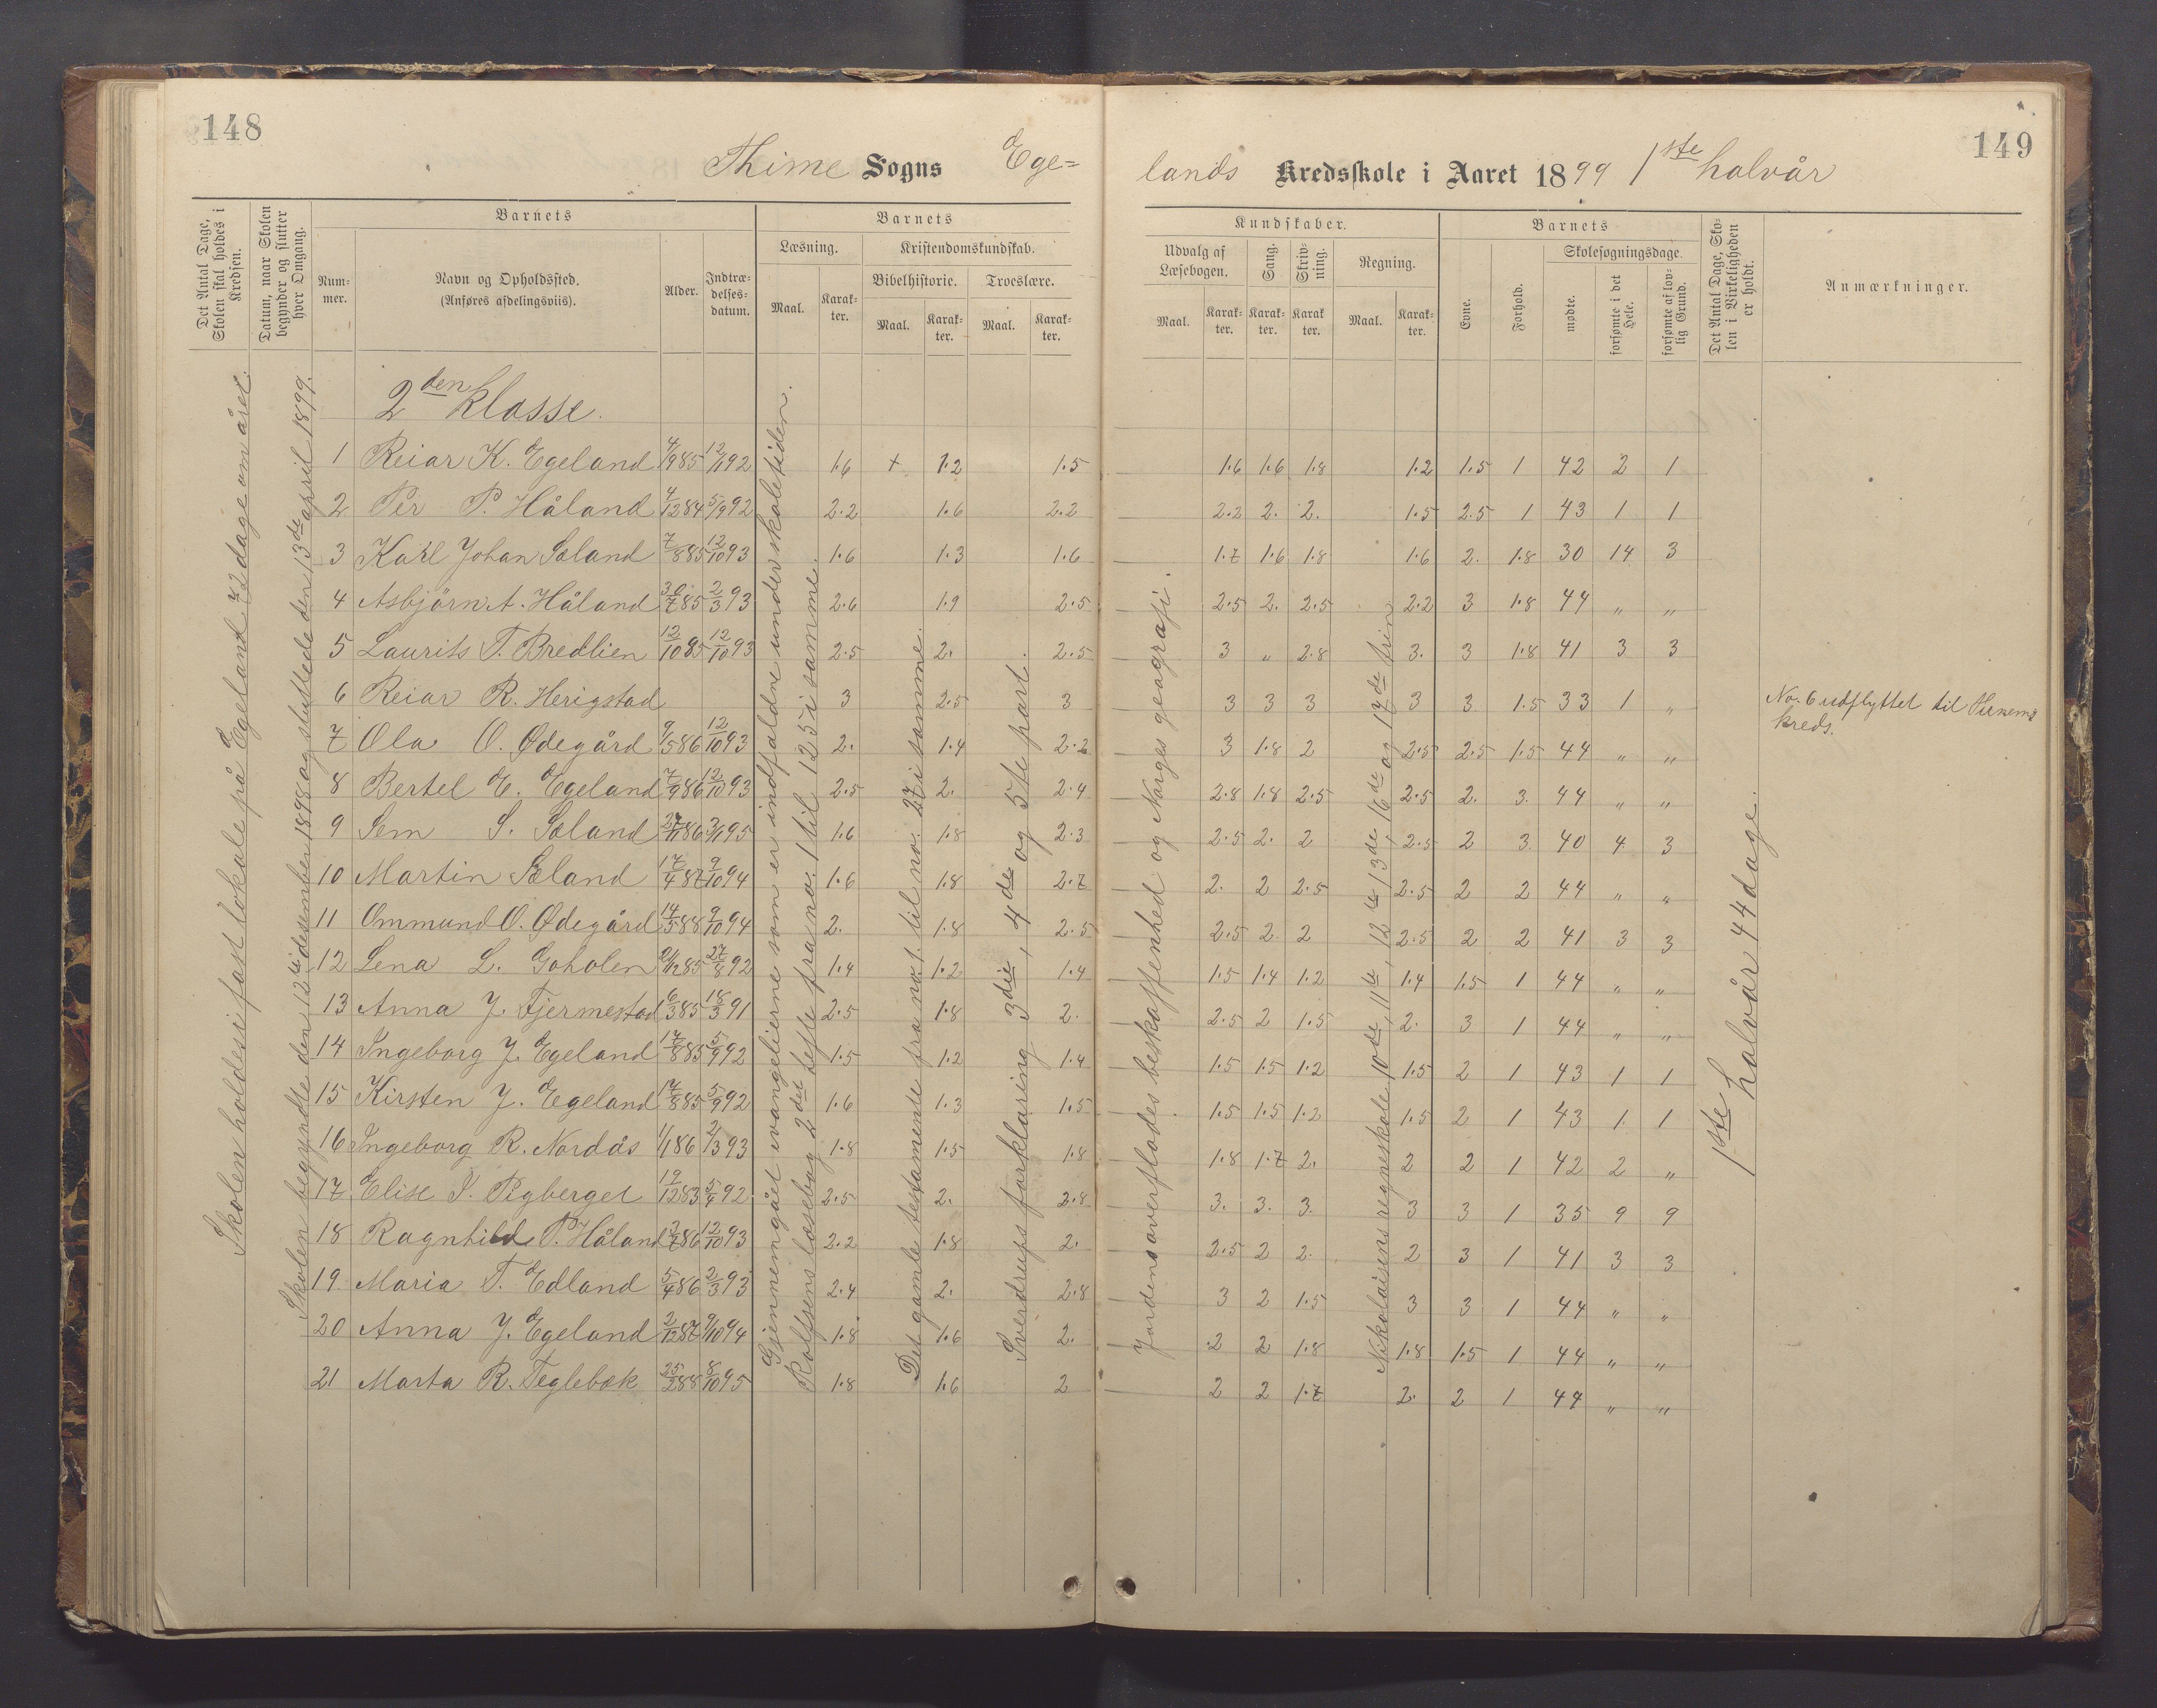 148
Thime Sogns Ege=
Det Antal Dage, Skolen skal holdes i Kredsen.
Datum, naar Skolen begynder og slutter hver Omgang.
Barnets
Nummer.
Navn og Opholdssted.
(Anføres afdelingsviis).
Alder.
Indtrædelsesdatum.
Barnets
Læsning.
Kristendomskundskab.
Bibelhistorie. Troeslære.
Maal. Karakter. Maal. Karakter. Maal. Karakter.
Skolen holdes i fast lokale på Egeland 72 dage om året.
Skolen begyndte den 12te desember 1898 og sluttede den 13de april 1899.
Gjennemgået evangelierne som er indfaldne under skoletiden.
Rolfsens læsebog 2det hefte fra no. 1 til 125 i samme.
Det gamle testamente fra no. 1 til no. 27 i samme.
Sverdrups forklaring 3die, 4de og 5te part.
2den klasse.
1 Reiar K. Egeland 4/9 85 12/9 92 1.6 + 1.2 1.5
2 Per P. Håland 4/12 84 5/9 92 2.2 1.6 2.2
3 Karl Johan Sæland 7/8 85 12/10 93 1.6 1.3 1.6
4 Asbjörn A. Håland 30/7 85 2/3 93 2.6 1.9 2.5
5 Laurits T. Bredlien 12/10 85 12/10 93 2.5 2. 2.5
6 Reiar R. Herigstad 3 2.5 3
7 Ola O. Ødegård 9/5 86 12/10 93 2. 1.4 2.2
8 Bertel E. Egeland 7/9 86 12/10 93 2.5 2. 2.4
9 Sem S. Sæland 1.6 1.8 2.3
10 Martin Sæland 17/4 87 9/10 94 1.6 1.8 2.7
11 Ommund O. Ødegård 14/5 88 9/10 94 2. 1.8 2.5
12 Lena L. Goholen 27/8 92 1.4 1.2 1.4
13 Anna J. Fjermestad 16/3 85 18/3 91 2.5 1.8 2.
14 Ingeborg J. Egeland 17/8 85 5/9 92 1.5 1.2 1.4
15 Kirsten J. Egeland 17/8 85 5/9 92 1.6 1.3 1.5
16 Ingeborg R. Nordås 1/1 86 2/3 93 1.8 1.5 1.8
17 Elise 19/12 83 5/9 92 2.5 2. 2.8
18 Ragnhild P. Håland 3/7 86 12/10 93 2.2 1.8 2.
19 Maria T. Edland 5/4 86 2/3 93 2.4 2. 2.8
20 Anna J. Egeland 2/12 87 9/10 94 1.8 1.6 2.
21 Marta R. Teglebæk 25/2 88 8/10 95 1.8 1.6 2
149
lands Kredsskole i Aaret 1899 1ste halvår
Kundskaber.
Udvalg af Læsebogen.
Sang.
Skrivning.
Regning.
Maal. Karakter. Karakter. Karakter. Maal. Karakter.
Barnets
Evne.
Forhold.
Skolesøgningsdage.
mødte.
forsømte i det Hele.
forsømte af lovlig Grund.
Det Antal Dage, Skolen i Virkeligheden er holdt.
Anmærkninger.
Jordens overflades beskaffenhed og Norges geografi.
Nikolaisens regneskole 10de, 11te, 12te 13de 16de og 17de trin
1ste halvår 44 dage.
1.6 1.6 1.8 1.2 1.5 1 42 2 1
2.2 2. 2. 1.5 2.5 1 43 1 1
1.7 1.6 1.8 1.6 2. 1.8 30 14 3
2.5 2. 2.5 2.2 3 1.8 44 " "
3 " 2.8 3. 3 1.8 41 3 3
3 3 3 3 3 1.5 33 1 "
No. 6 udflyttet til
kreds.
3 1.8 2 2.5 2.5 1.5 44 " "
2.8 1.8 2.5 2.5 2. 3. 44 " "
2.5 2. 2 2.5 2 3 40 4 3
2. 2 2.5 2.5 2 2 44 " "
2.5 2. 2 2.5 2 2 41 3 3
1.5 1.4 1.2 1.4 1.5 1 44 " "
2.5 2 1.5 2. 3 1 44 " "
1.5 1.5 1.2 1.5 2 1 43 1 1
1.5 1.5 1.2 1.5 2 1 43 1 1
1.8 1.7 2. 2 2 1 42 2 "
3. 3. 3. 3 3 1 35 9 9
2.5 2 2. 2 3 1 41 3 3
3 2 1.5 3 3 1 44 " "
2 2 1.8 1.8 1.5 1 44 " "
2 2 1.7 2. 2 1 44 " "